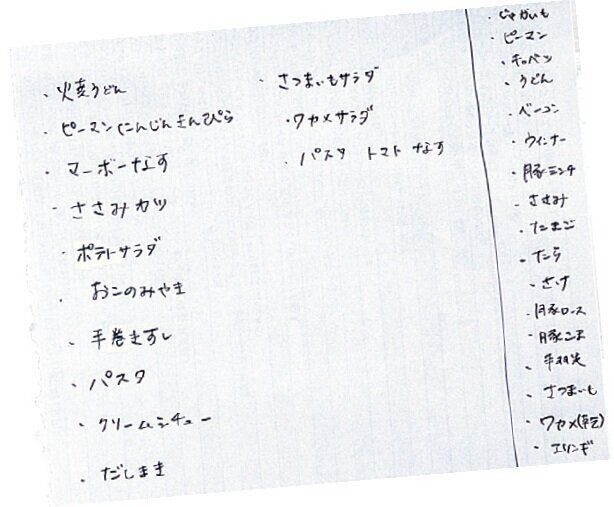 ・火尭うどん
・ピーマン にんじん きんぴら
・マーボーなす
・ささみカツ
・ポテトサラダ
・おこのみやき
・手巻きすし
・パスタ
・クリームシチュー
・だしまき
・さつまいもサラダ
・ワカメサラダ
・パスタ トマト なす
・じゃがいも
・ピーマン
・キャベツ
・うどん
・ベーコン
・ウィンナー
・豚ミンチ
・ささみ
・たまご
・たら
・さけ
・豚ロース
・豚こま
・手羽先
・さつまいも
・ワカメ(乾)
・エリンギ